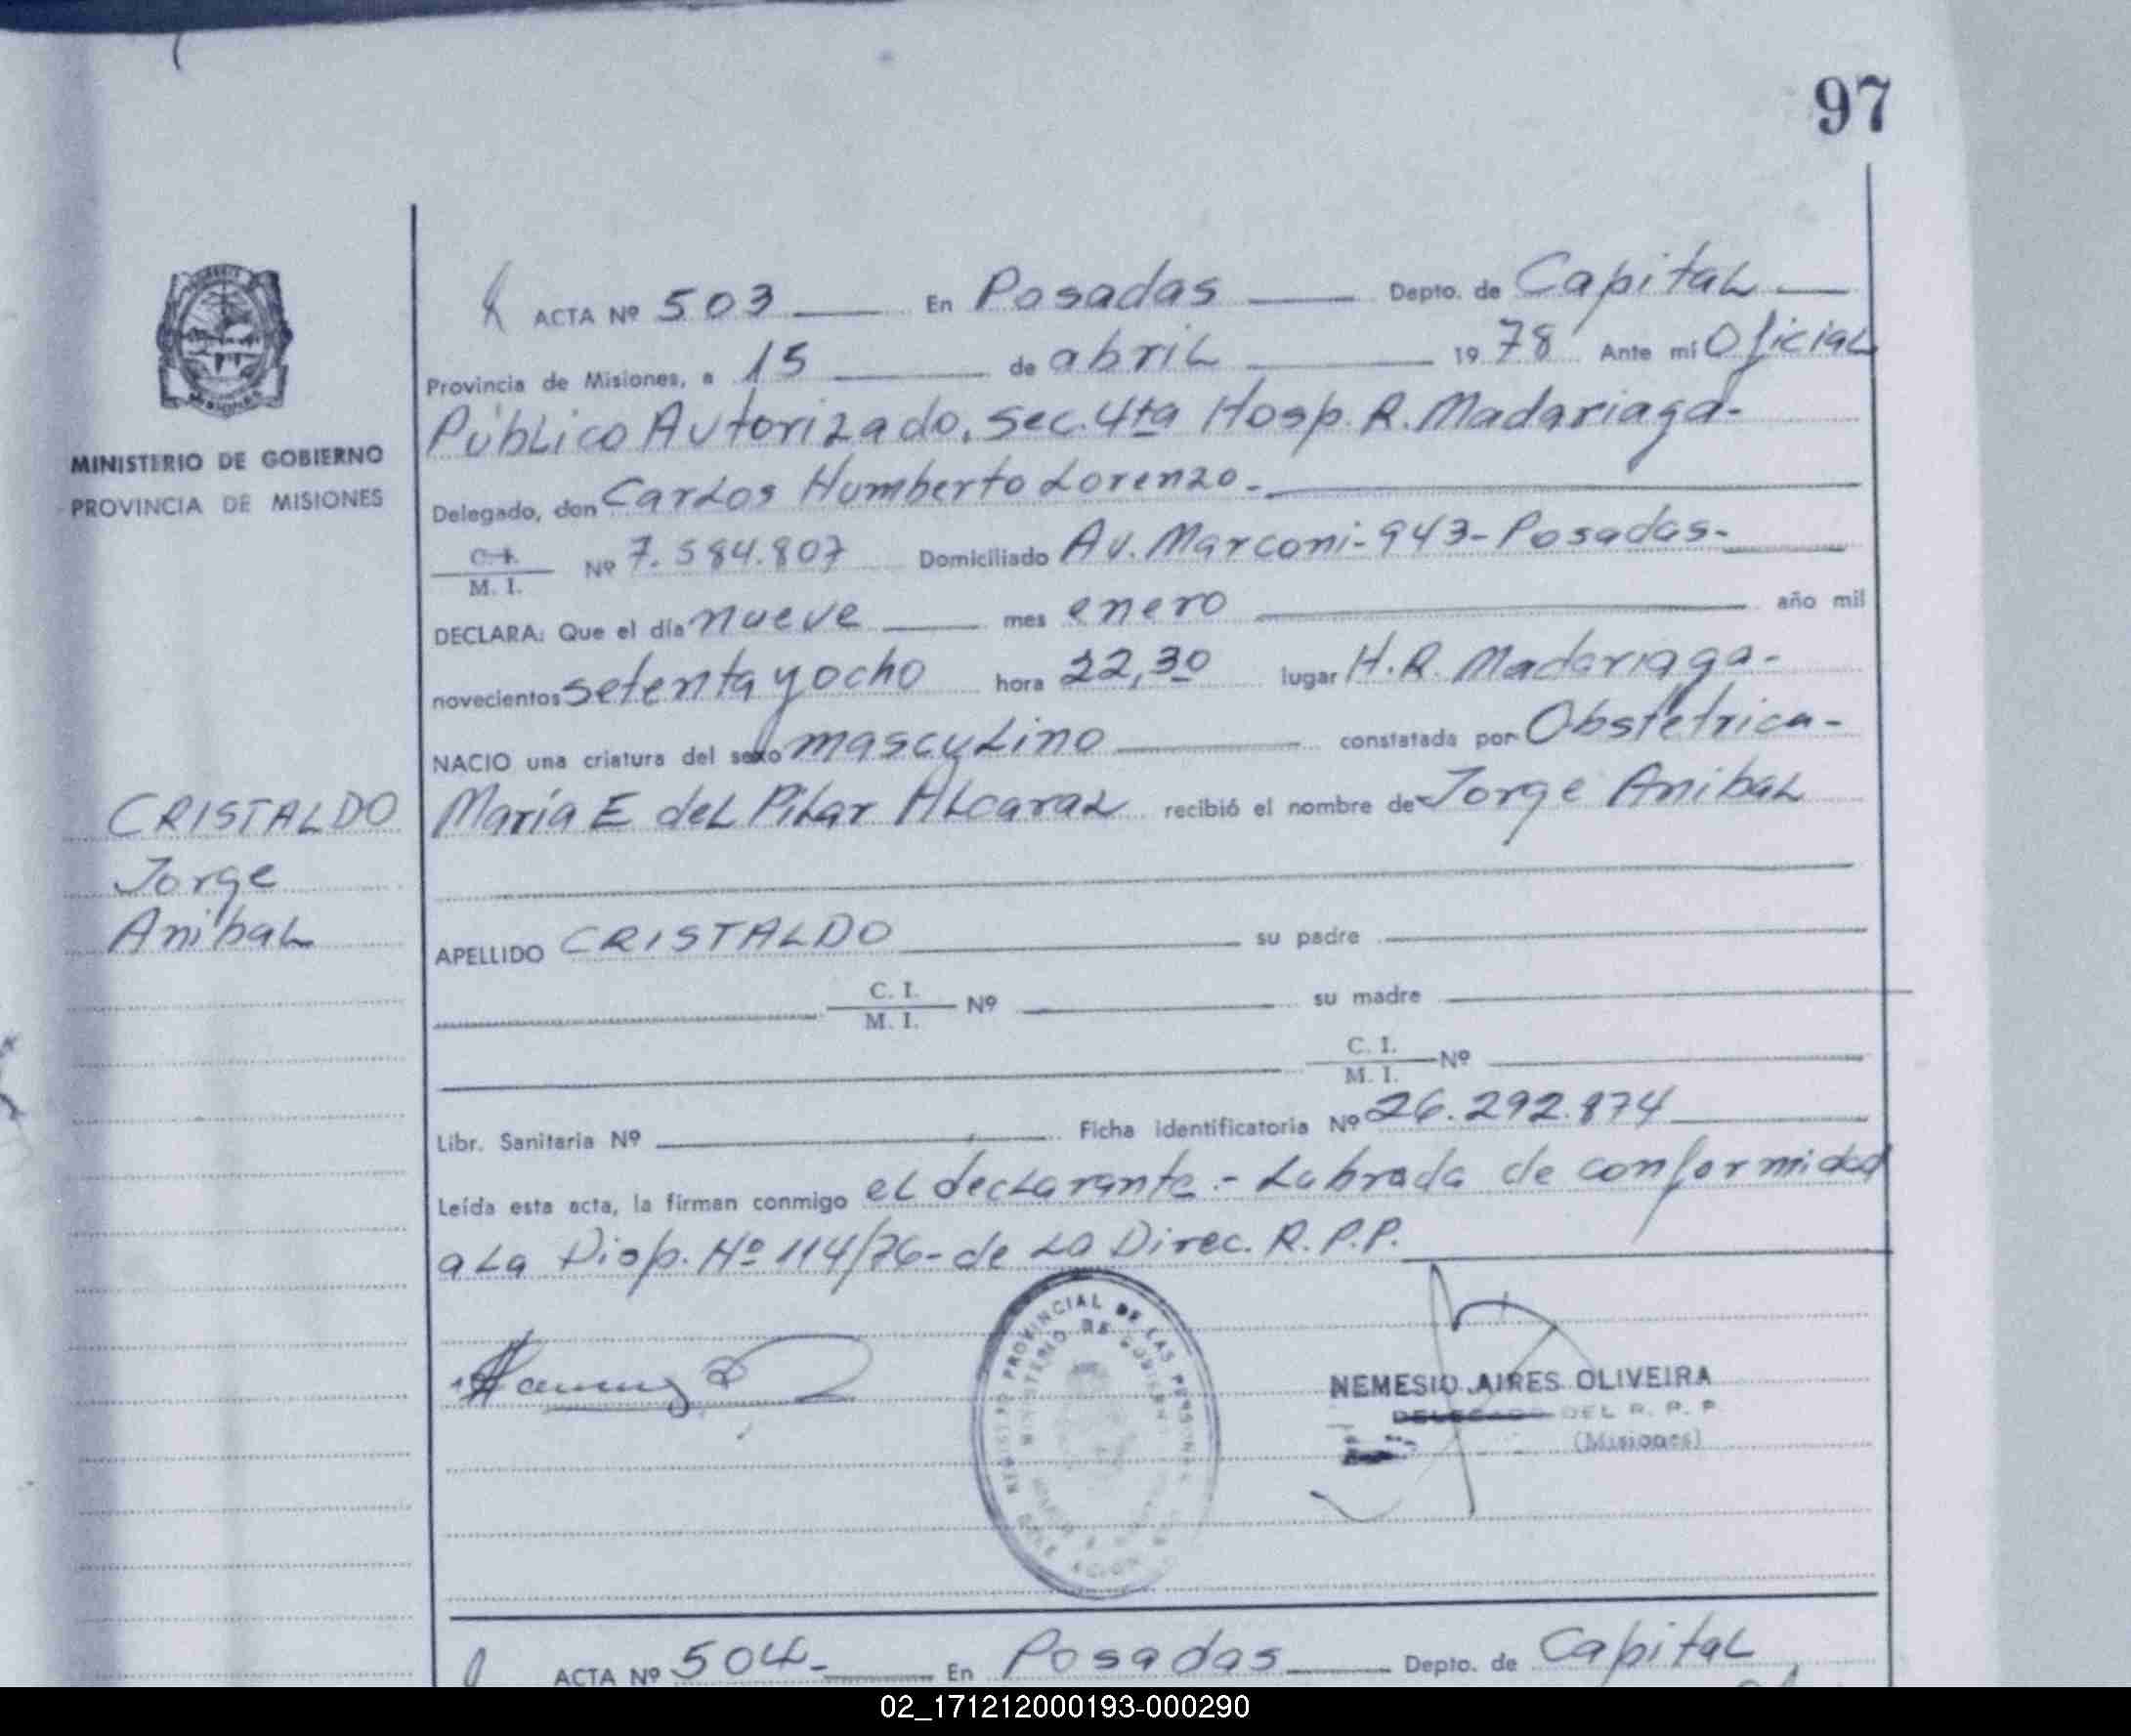 97
ACTA Nº 503 En Posadas Depto. de Capital
Provincia de Misiones, a 15 de abril 1978 Ante mí Oficial
Público Autorizado, Sec. 4ta Hosp. R. Madariaga-
MINISTERIO DE GOBIERNO
PROVINCIA DE MISIONES
Delegado, don Carlos Humberto Lorenzo.-
C. I.
M. I. Nº 7.584.807 Domiciliado Av. Marconi-943-Posadas-
DECLARA: Que el día nueve mes enero año mil
novecientos setenta y ocho hora 22,30 lugar H.R. Madariaga-
NACIO una criatura del sexo masculino constatada por Obstetrica-
María E del Pilar Alcaraz recibió el nombre de Jorge Anibal
CRISTALDO
Jorge
Anibal
APELLIDO CRISTALDO su padre
C. I.
M. I. Nº su madre
C. I.
M. I. Nº
Libr. Sanitaria Nº Ficha identificatoria Nº 26.292.874
Leída esta acta, la firman conmigo el declarante.- Labrada de conformidad
a la Disp. Nº 114/76-de la Direc. R.P.P.
PROVINCIAL DE LAS PERSONAS
MINISTERIO DE GOBIERNO
NEMESIO AIRES OLIVEIRA
DELEGADO DEL R. P. P.
(Misiones)
ACTA Nº 504- En Posadas Depto. de Capital
02_171212000193-000290